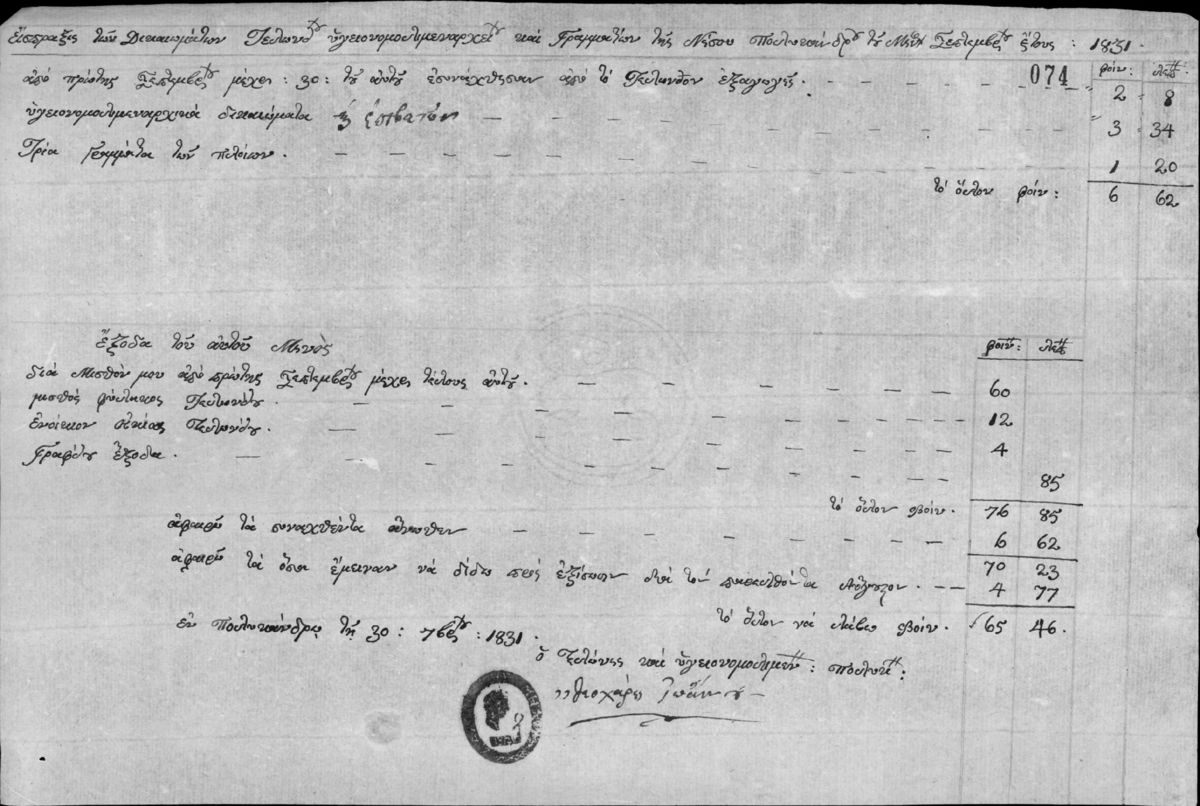 Εἴσπραξις τῶν Δικαιωμάτων Τελων: ὑγειονομολιμεναρχεί καὶ Γραμματίων τῆς Νήσου Πολυκάνδρ τ Μην Σεπτεμβρ ἔτους : 1831.
074
φοίν: λεπ.
ἀπὸ πρώτης Σεπτεμβρ μέχρι : 30 : τ αὐτ ἐσυνάχθησαν ἀπὸ τὸ Τελωνεῖον ἐξαγωγῆς. 2 8
ὑγειονομολιμεναρχικὰ δικαιώματα 3 34
Τρία γράμματα τῶν πλοίων. 1 20
τὸ ὅλον φοίν: 6 62
ἔξοδα τοῦ αὐτοῦ Μηνὸς
φοίν: λεπ
διὰ Μισθόν μου ἀπὸ πρώτης Σεπτεμβρ μέχρι τέλους αὐτ. 60
μισθὸς φύλακος Τελωνίου. 12
ἐνοίκιον οἰκίας Τελωνίου. 4
Γραφίου ἔξοδα. 85
τὸ ὅλον φοίν. 76 85
ἀφαιρῶ τὰ συναχθέντα ἄνωθεν 6 62
70 23
ἀφαιρῶ τὰ ὅσα ἔμειναν νὰ δίδω πρὸς ἐξίσωσιν διὰ τὸν παρελθόντα Αὔγουστον. 4 77
τὸ ὅλον νὰ λάβω φοίν. 65 46.
ἐν Πολυκάνδρῳ τῇ 30 : 7βρ : 1831.
ὁ Τελώνης καὶ ὑγειονομολιμεν : πολυκ :
Θεοχάρης Ἰωάννου